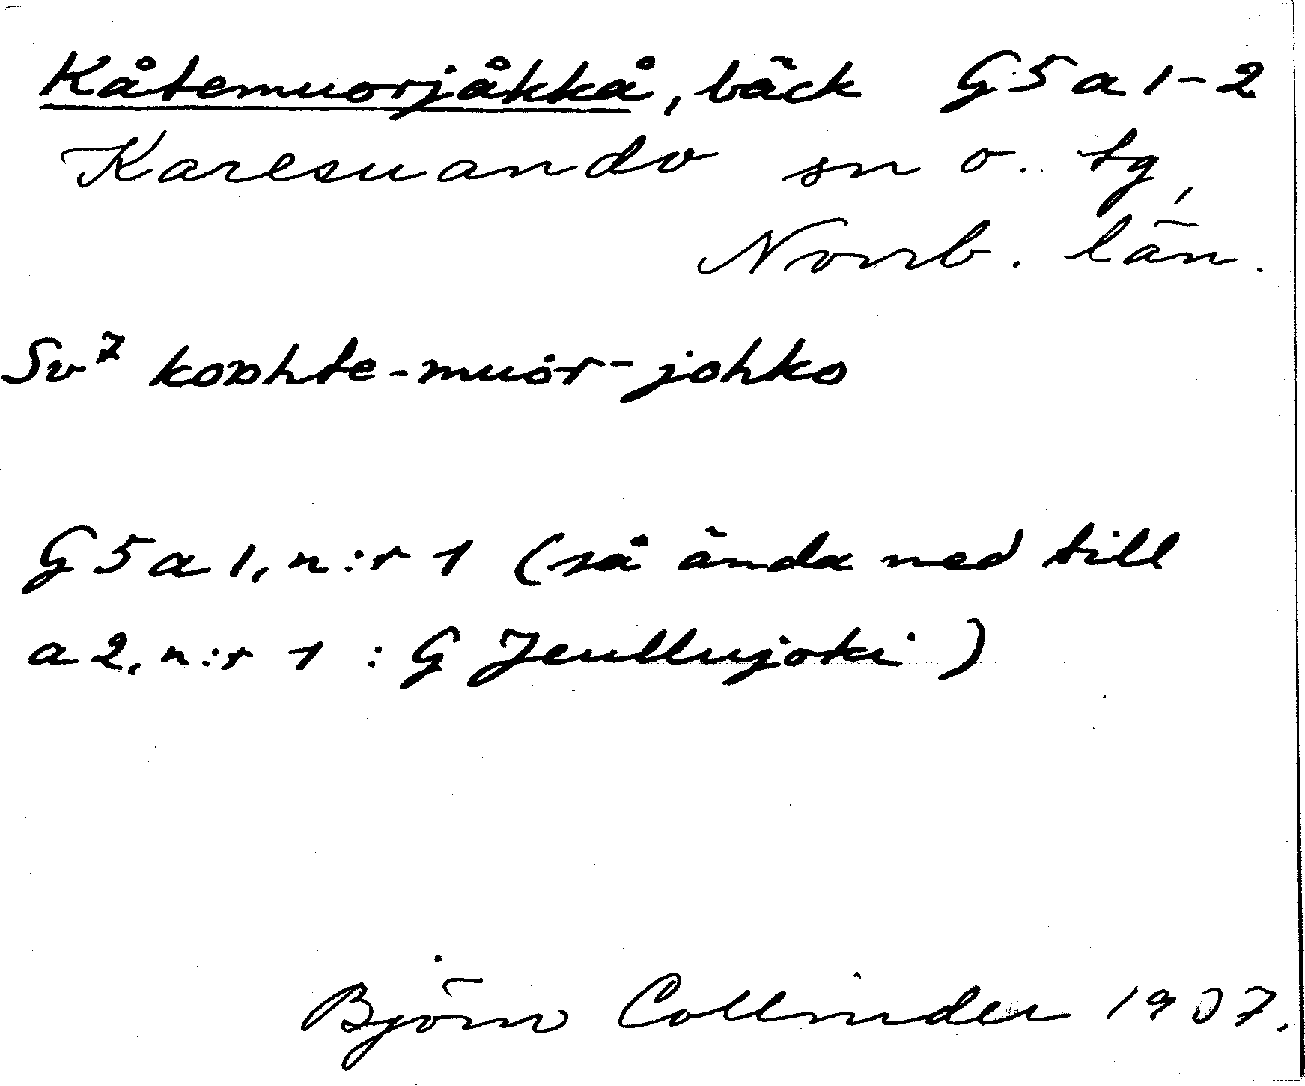 Kåtemuorjåkkå, bäck G5a1-2
Karesuando sn o. tg,
Norrb. län.
Sv⁷ koɒhte-muör-johko
G5a1, n:r 1 (så ända ned till
a2, n:r 1 : G Jeullujoki)
Björn Collinder 1937.